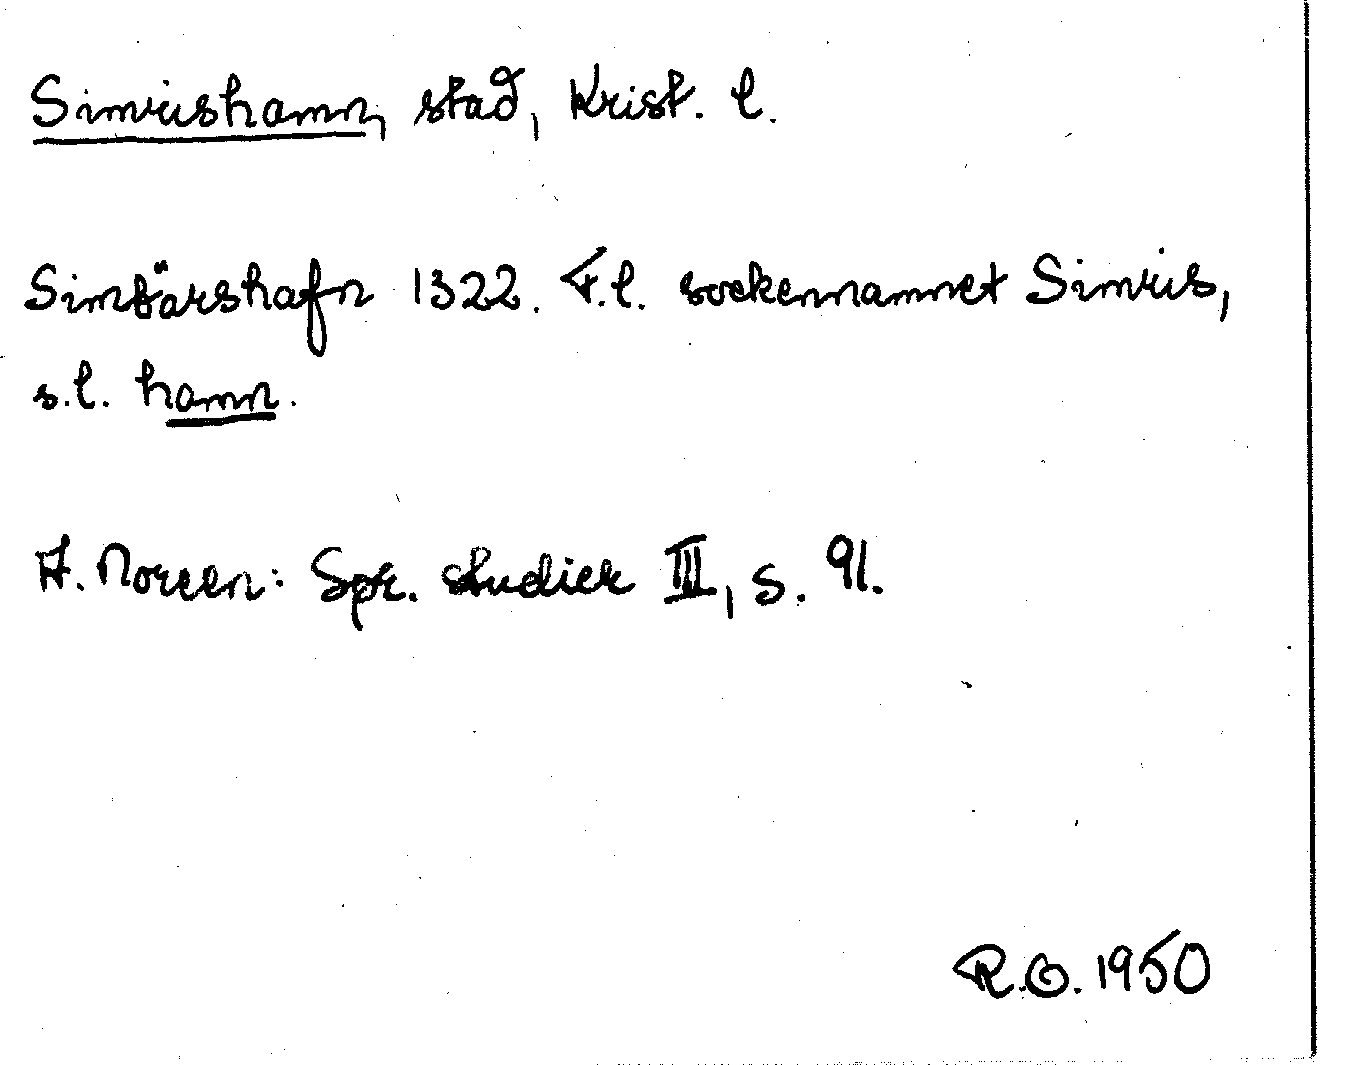 Simrishamn, stad, Krist. l.
Simbärshafn 1322. F.l. sockennamnet Simris,
s.l. hamn.
A. Noreen: Spr. studier III, s. 91.
R.O. 1950